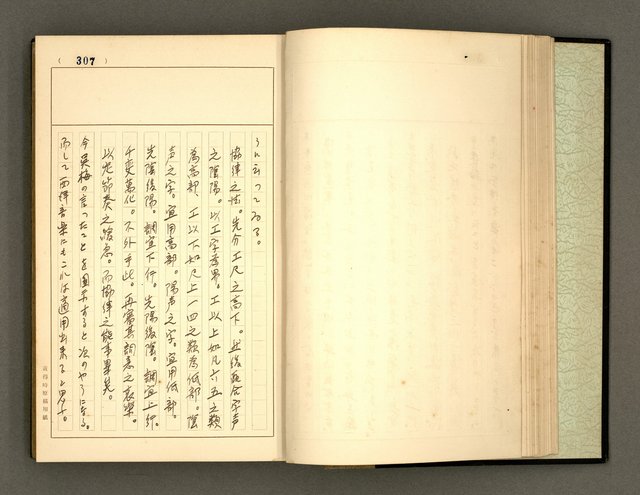 ( 307 )
うに云つてゐる。
協律之法。先分工尺之高下。然後龤合字声
之陰陽。以工字為界。工以上如凡六五之類
為高部、工以下如尺上一四之類為低部。陰
声之字。宜用高部。陽声之字。宜用低部。
先陰後陽。調宜下行。先陽後陰。調宜上行。
千変萬化。不外乎此。再審其詞意之哀樂。
以定節奏之緩急。而協律之能事畢矣。
今吳梅の言つたことを図示すると次のやうになる。
而して西洋音楽にもこれは適用出来ると思ふ。
黃得時原稿用紙